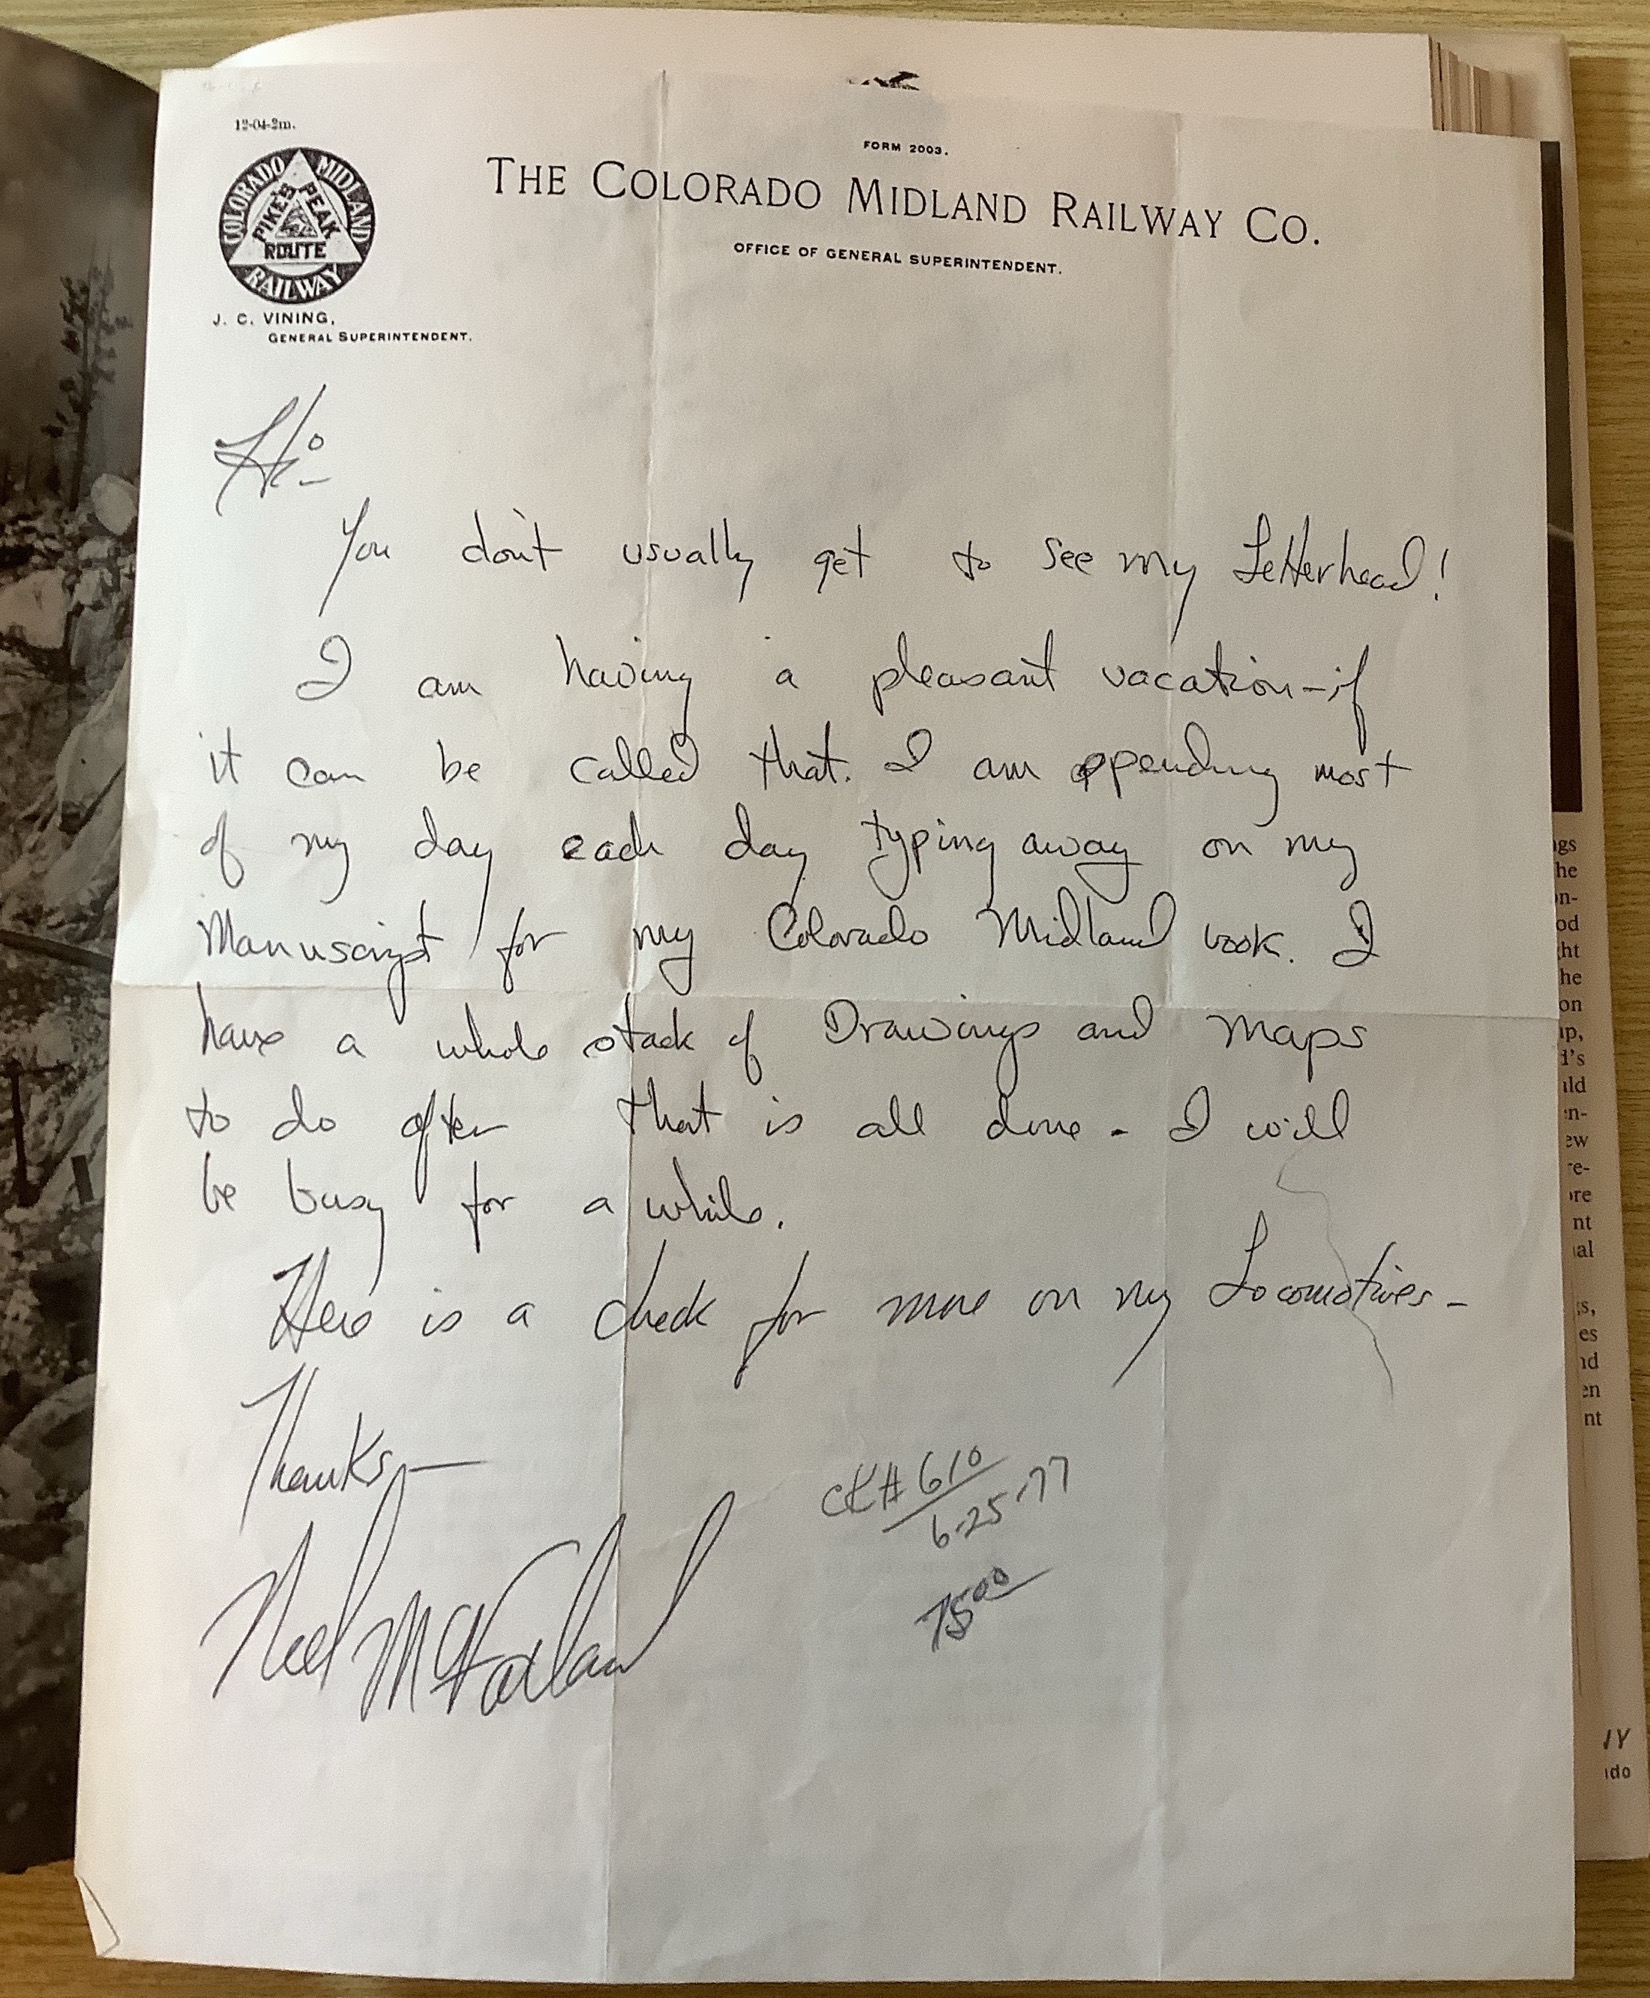 12-04-2m.
FORM 2003.
THE COLORADO MIDLAND RAILWAY CO.
OFFICE OF GENERAL SUPERINTENDENT.
COLORADO MIDLAND RAILWAY
PIKE'S PEAK ROUTE
J. C. VINING,
GENERAL SUPERINTENDENT.
Hi-
You don't usually get to see my Letterhead!
I am having a pleasant vacation-if
it can be called that. I am spending most
of my day each day typing away on my
Manuscript for my Colorado Midland book. I
have a whole stack of Drawings and Maps
to do after that is all done - I will
be busy for a while.
Here is a check for more on my Locomotives-
Thanks-
CK# 610
6-25-77
75 00
McFarland
ngs
he
on-
od
ht
he
on
ıp,
d's
uld
en-
ew
re-
ore
nt
al
s,
es
nd
en
nt
NY
do